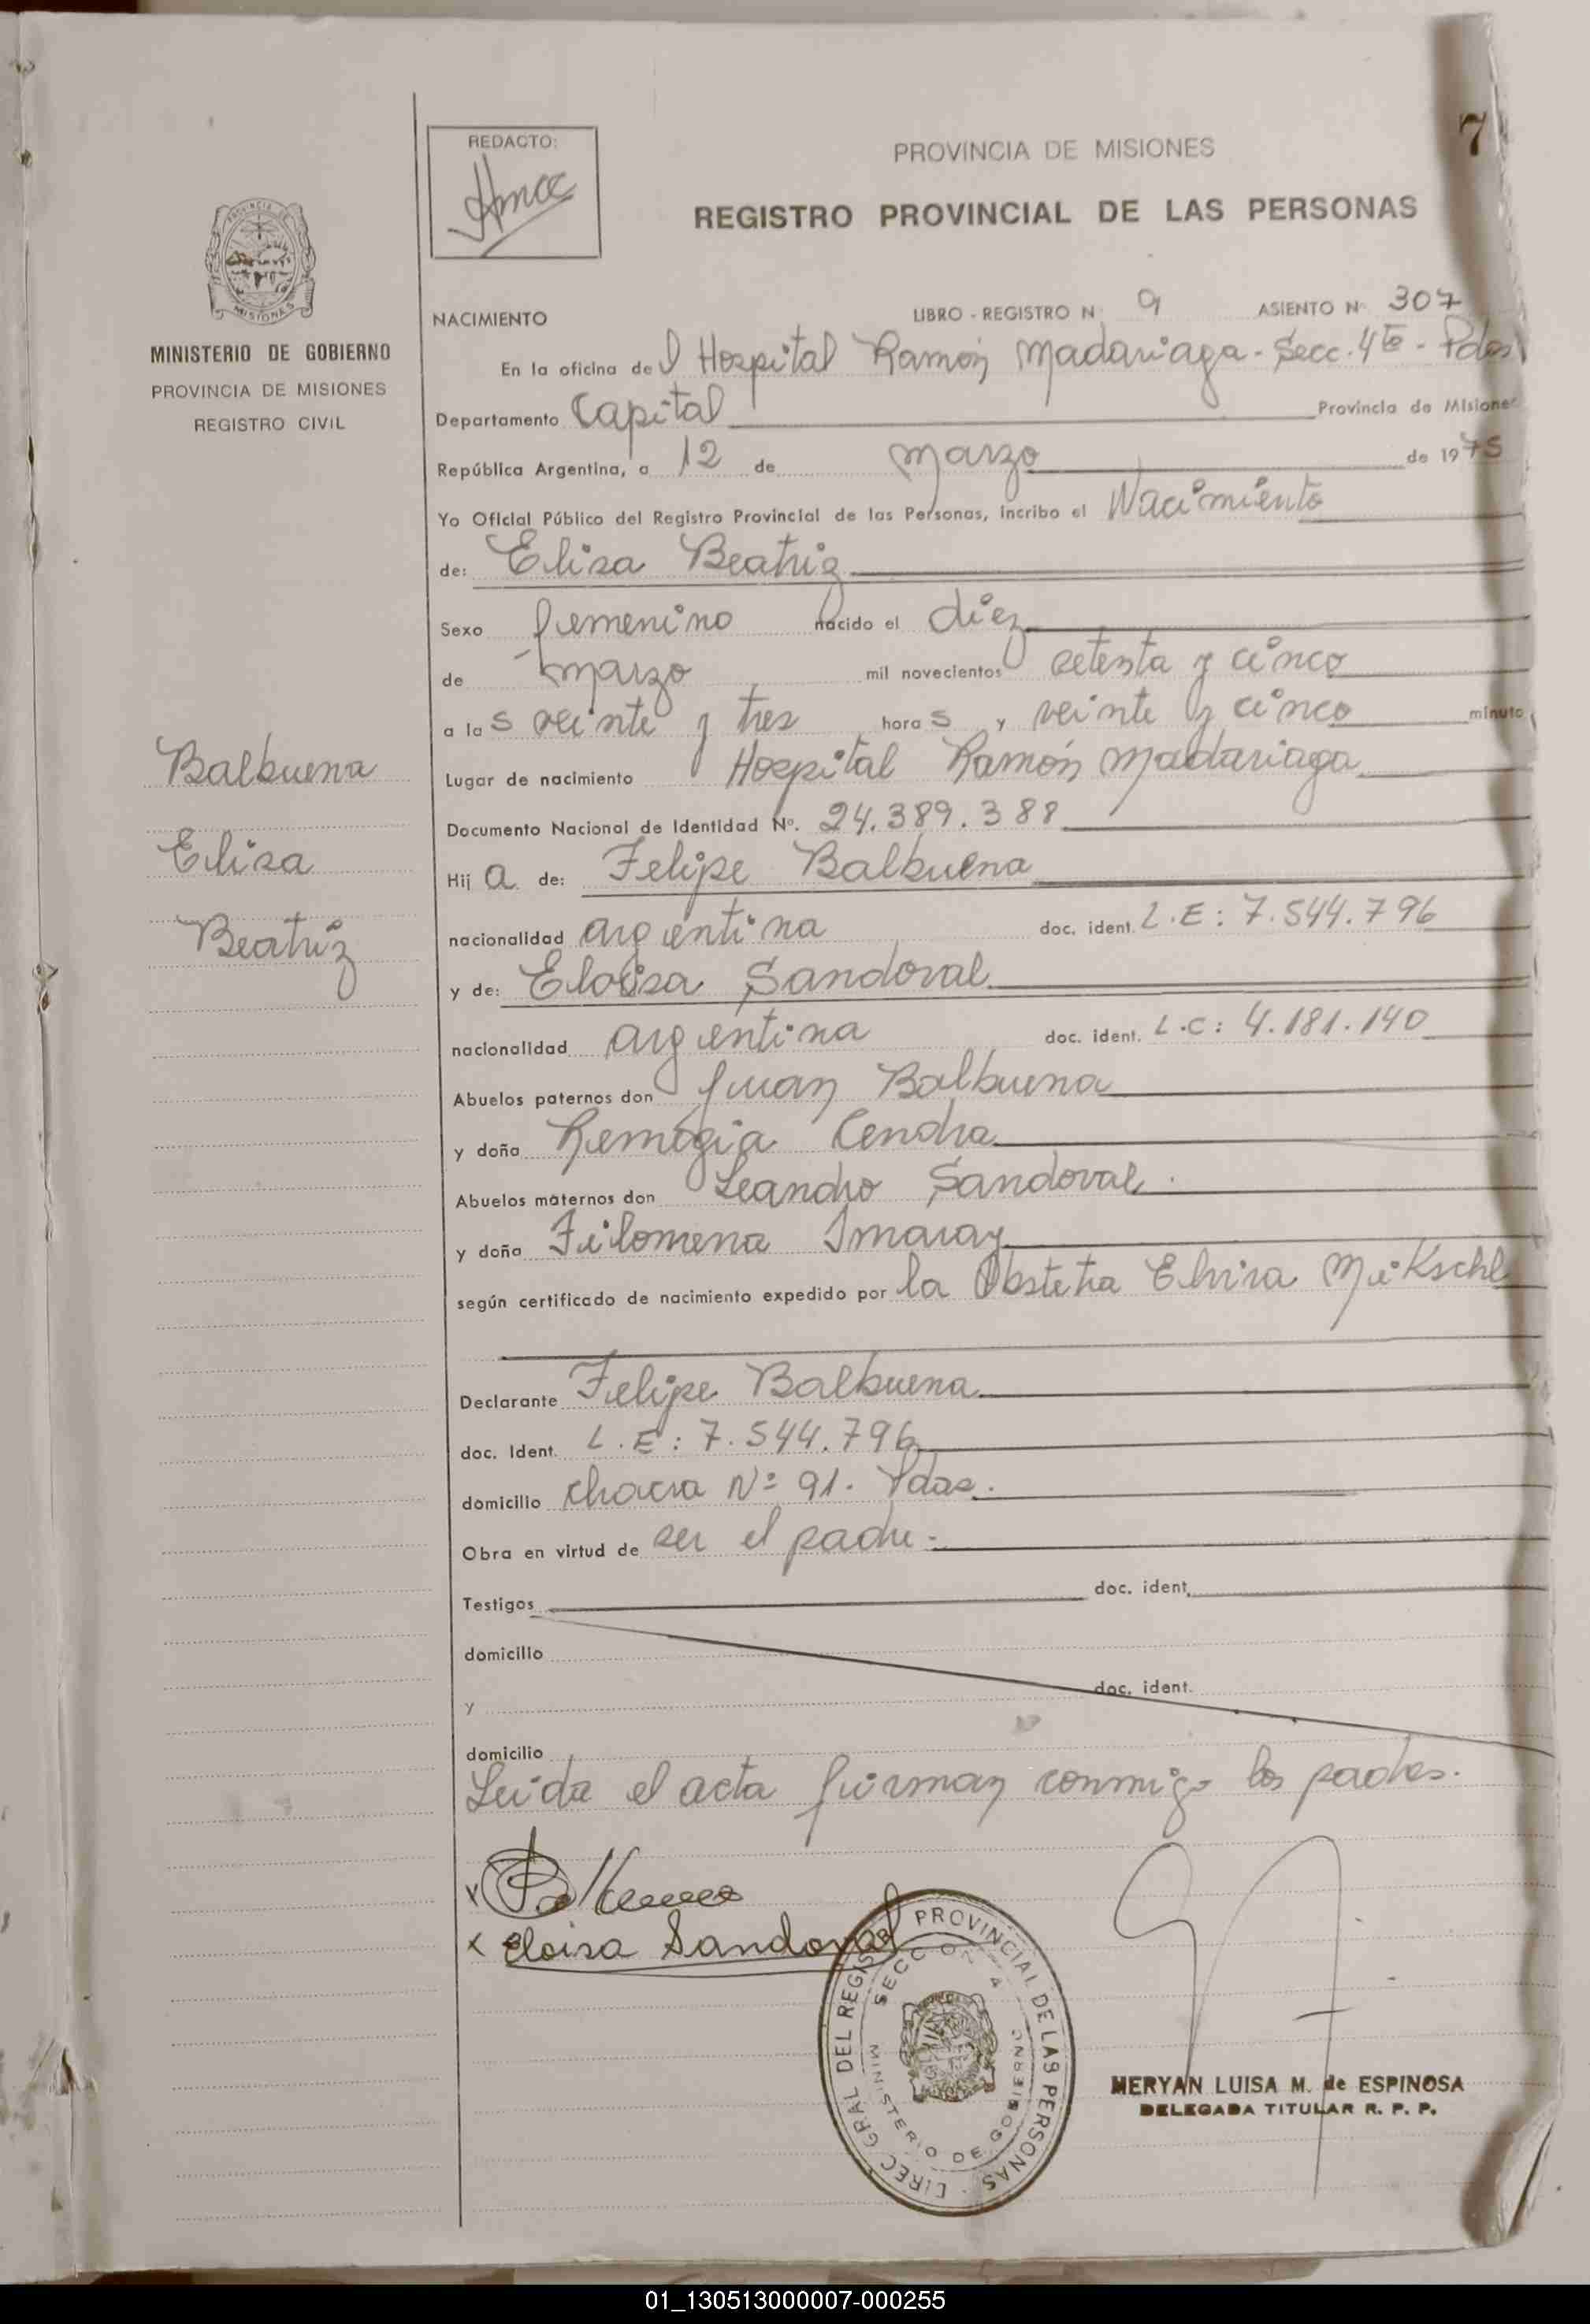 7
REDACTO:
PROVINCIA DE MISIONES
REGISTRO PROVINCIAL DE LAS PERSONAS
MISIONES
MINISTERIO DE GOBIERNO
PROVINCIA DE MISIONES
REGISTRO CIVIL
NACIMIENTO LIBRO - REGISTRO N 9 ASIENTO N 307
En la oficina del Hospital Ramón Madariaga - Secc. 4ta - Pdas
Departamento Capital Provincia de Misiones
República Argentina, a 12 de marzo de 1975
Yo Oficial Público del Registro Provincial de las Personas, incribo el Nacimiento
de: Elisa Beatriz
Sexo femenino nacido el diez
de marzo mil novecientos setenta y cinco
a las veinte y tres horas y veinte y cinco minuto
Lugar de nacimiento Hospital Ramón Madariaga
Documento Nacional de Identidad Nº. 24.389.388
Hija de: Felipe Balbuena
nacionalidad argentina doc. ident. L.E: 7.544.796
y de: Eloisa Sandoval
nacionalidad argentina doc. ident. L.C: 4.181.140
Abuelos paternos don Juan Balbuena
y doña Remogia Cendra
Abuelos maternos don Leandro Sandoval
y doña Filomena Imaray
según certificado de nacimiento expedido por la Obstetra Elvira Mikschl
Declarante Felipe Balbuena
doc. Ident. L.E: 7.544.796
domicilio chacra Nº 91. Pdas.
Obra en virtud de ser el padre.
Testigos doc. ident.
domicilio
y doc. ident.
domicilio
Leida el acta firman conmigo los padres.
Balbuena
Elisa
Beatriz
x Balbuena
x Eloisa Sandoval
DIREC GRAL DEL REGISTRO PROVINCIAL DE LAS PERSONAS
SECCION 4
MINISTERIO DE GOBIERNO
MERYAN LUISA M. de ESPINOSA
DELEGADA TITULAR R. P. P.
01_130513000007-000255